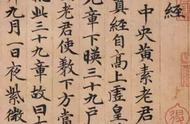 中央黃素老君
真經自高上虛皇
九章下暎三十九戶
老君使教下方當
此三十九章故曰
九月一日夜紫微